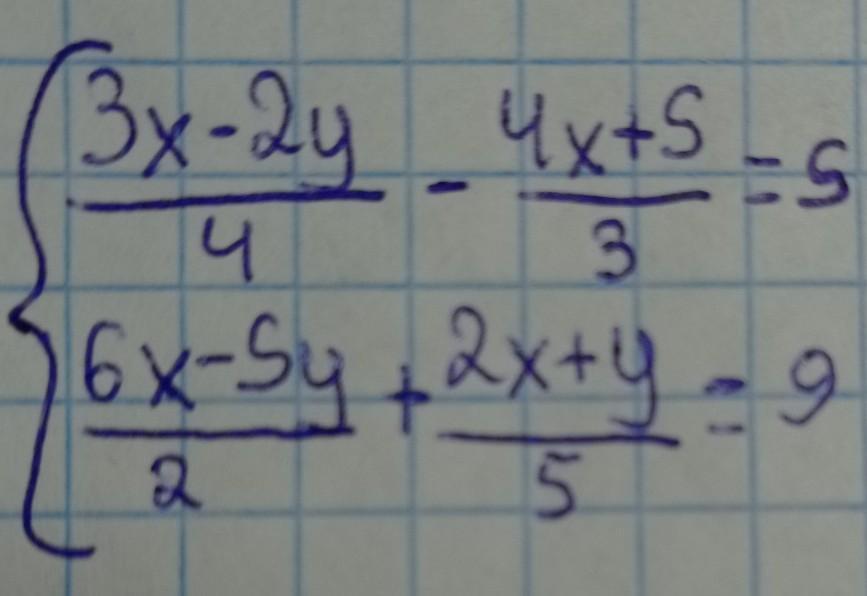 3x-2y/4 - 4x+5/3 = 5
6x-5y/2 + 2x+y/5 = 9